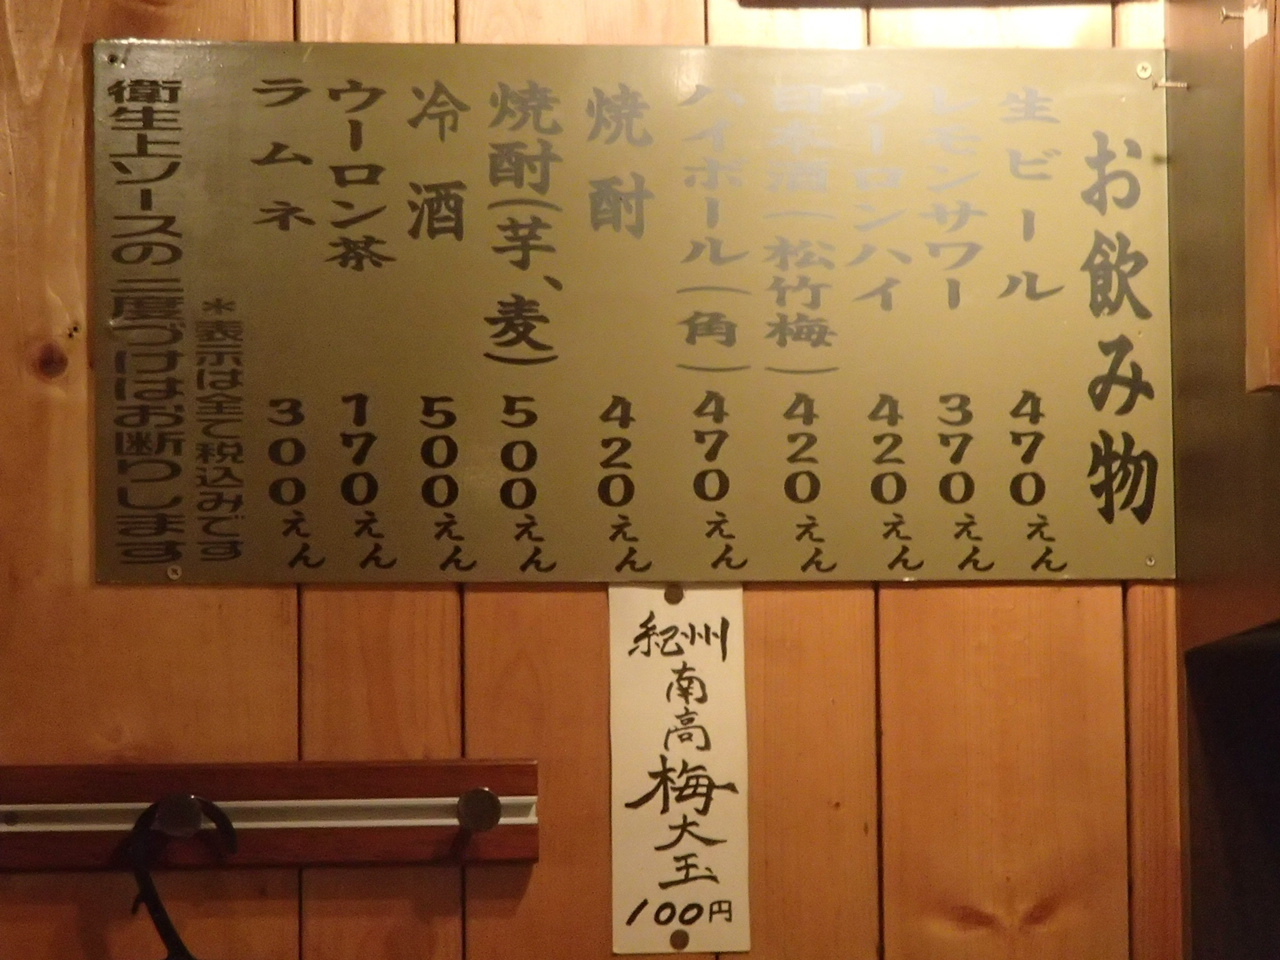 お飲み物
生ビール 470えん
レモンサワー 370えん
ウーロンハイ 420えん
日本酒(松竹梅) 420えん
ハイボール(角) 470えん
焼酎 420えん
焼酎(芋、麦) 500えん
冷酒 500えん
ウーロン茶 170えん
ラムネ 300えん
*表示は全て税込みです
衛生上ソースの二度づけはお断りします
紀州
南
高
梅
大
玉
100円